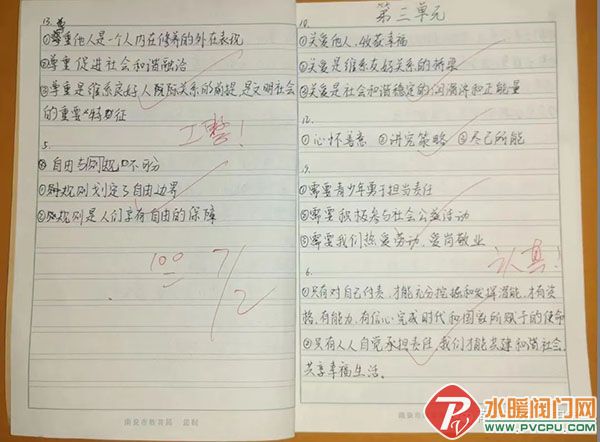 13.
①尊重他人是一个人内在修养的外在表现
②尊重促进社会和谐融洽
③尊重是维系良好人际关系的前提,是文明社会
的重要特征
工整!
5.
①自由与规则不可分
②规则划定了自由边界
③规则是人们享有自由的保障
100
7/2
南安市教育局 监制
第三单元
10.
①关爱他人,收获幸福
②关爱是维系友好关系的桥梁
③关爱是社会和谐稳定的润滑剂和正能量
12.
①心怀善意 ②讲究策略 ③尽己所能
9.
①需要青少年勇于担当责任
②需要积极参与社会公益活动
③需要我们热爱劳动,爱岗敬业
认真!
6.
①只有对自己付责,才能充分挖掘和发挥潜能,才有资
格,有能力,有信心完成时代和国家所赋予的使命
②只有人人自觉承担责任,我们才能共建和谐社会,
共享幸福生活。
水暖阀门网
WWW.PVCPU.COM